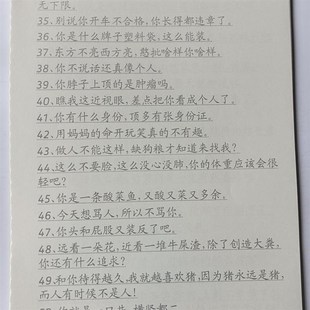 无下限。
35、别说你开车不合格，你长得都违章了。
36、你是什么牌子塑料袋，这么能装。
37、东方不亮西方亮，憨批啥样你啥样。
38、你不说话还真像个人。
39、你脖子上顶的是肿瘤吗。
40、瞧我这近视眼，差点把你看成个人了。
41、你有什么身份，顶多有张身份证。
42、用妈妈的命开玩笑真的不有趣。
43、做人不能这样，缺狗粮才知道来找我？
44、这么不要脸，这么没心没肺，你的体重应该会很
轻吧？
45、你是一条酸菜鱼，又酸又菜又多余。
46、今天想骂人，所以不骂你。
47、你头和屁股又装反了吧。
48、远看一朵花，近看一堆牛屎渣，除了创造大粪，
你还有什么追求？
49、和你待得越久，我就越喜欢猪，因为猪永远是猪，
而人有时候不是人！